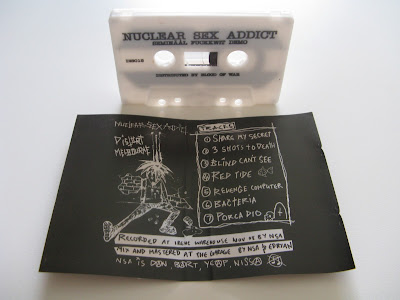 NUCLEAR SEX ADDICT
SEMINAÄL FUCKKNUT DEMO
DISTRIBUTED BY HANDS OF WAR
NUCLEAR SEX ADDICT
MELBOURNE
TRACKS
1 SHARE MY SECRET
2 3 SHOTS TO DEATH
3 BLIND CAN'T SEE
4 RED TIDE
5 REVENGE COMPUTER
6 BACTERIA
7 PORCA DIO
RECORDED AT IRENE WAREHOUSE NOV 08 BY NSA
MIX AND MASTERED AT THE GARAGE BY NSA & EDRIAN
NSA IS DAN, BART, YEAP, NISSA